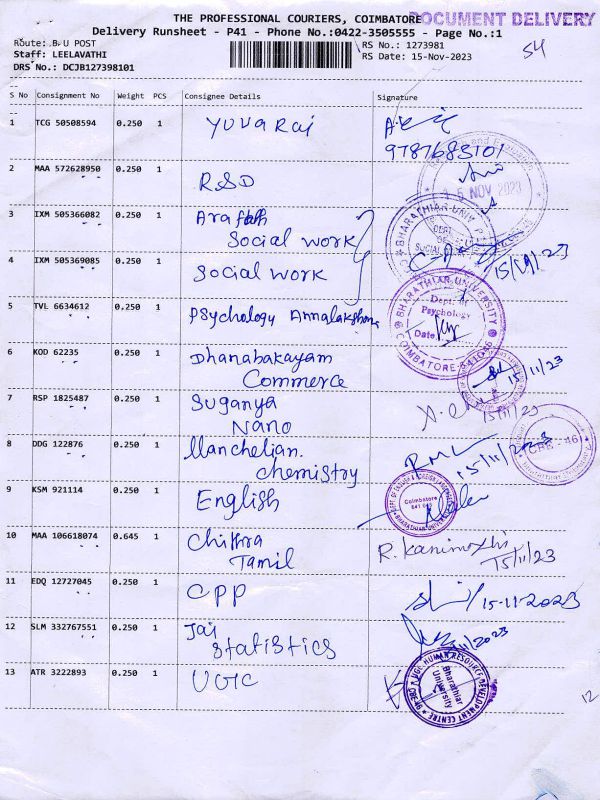 THE PROFESSIONAL COURIERS, COIMBATORE
DOCUMENT DELIVERY
Delivery Runsheet - P41 - Phone No.:0422-3505555 - Page No.:1
Route: B U POST
RS No.: 1273981
Staff: LEELAVATHI
RS Date: 15-Nov-2023
DRS No.: DCJB127398101
54
S No Consignment No Weight PCS Consignee Details Signature
1 TCG 50508594 0.250 1 Yuvaraj
9787683101
2 MAA 572628950 0.250 1 RSD
15 NOV 2023
3 IXM 505366082 0.250 1 Arafath
Social work
BHARATHIAR UNIV
DEPT. OF
SOCIAL
4 IXM 505369085 0.250 1 Social work
15/11/23
5 TVL 6634612 0.250 1 Psychology Annalakshmi
BHARATHIAR UNIVERSITY
Dept. of
Psychology
Date
COIMBATORE-641046
6 KOD 62235 0.250 1 Dhanabakayam
Commerce
15/11/23
7 RSP 1825487 0.250 1 Suganya
Nano
15/11/23
8 DDG 122876 0.250 1 Manchelian.
chemistry
15/11/2023
CBE - 46
9 KSM 921114 0.250 1 English
Coimbatore
641 046
10 MAA 106618074 0.645 1 Chithra
Tamil
R. Kanimozhi
15/11/23
11 EDQ 12727045 0.250 1 CPP
15-11-2023
12 SLM 332767551 0.250 1 Jai
Statistics
13 ATR 3222893 0.250 1 UGC
HUMAN RESOURCE DEVELOPMENT CENTRE
Bharathiar
University
CBE-46
12